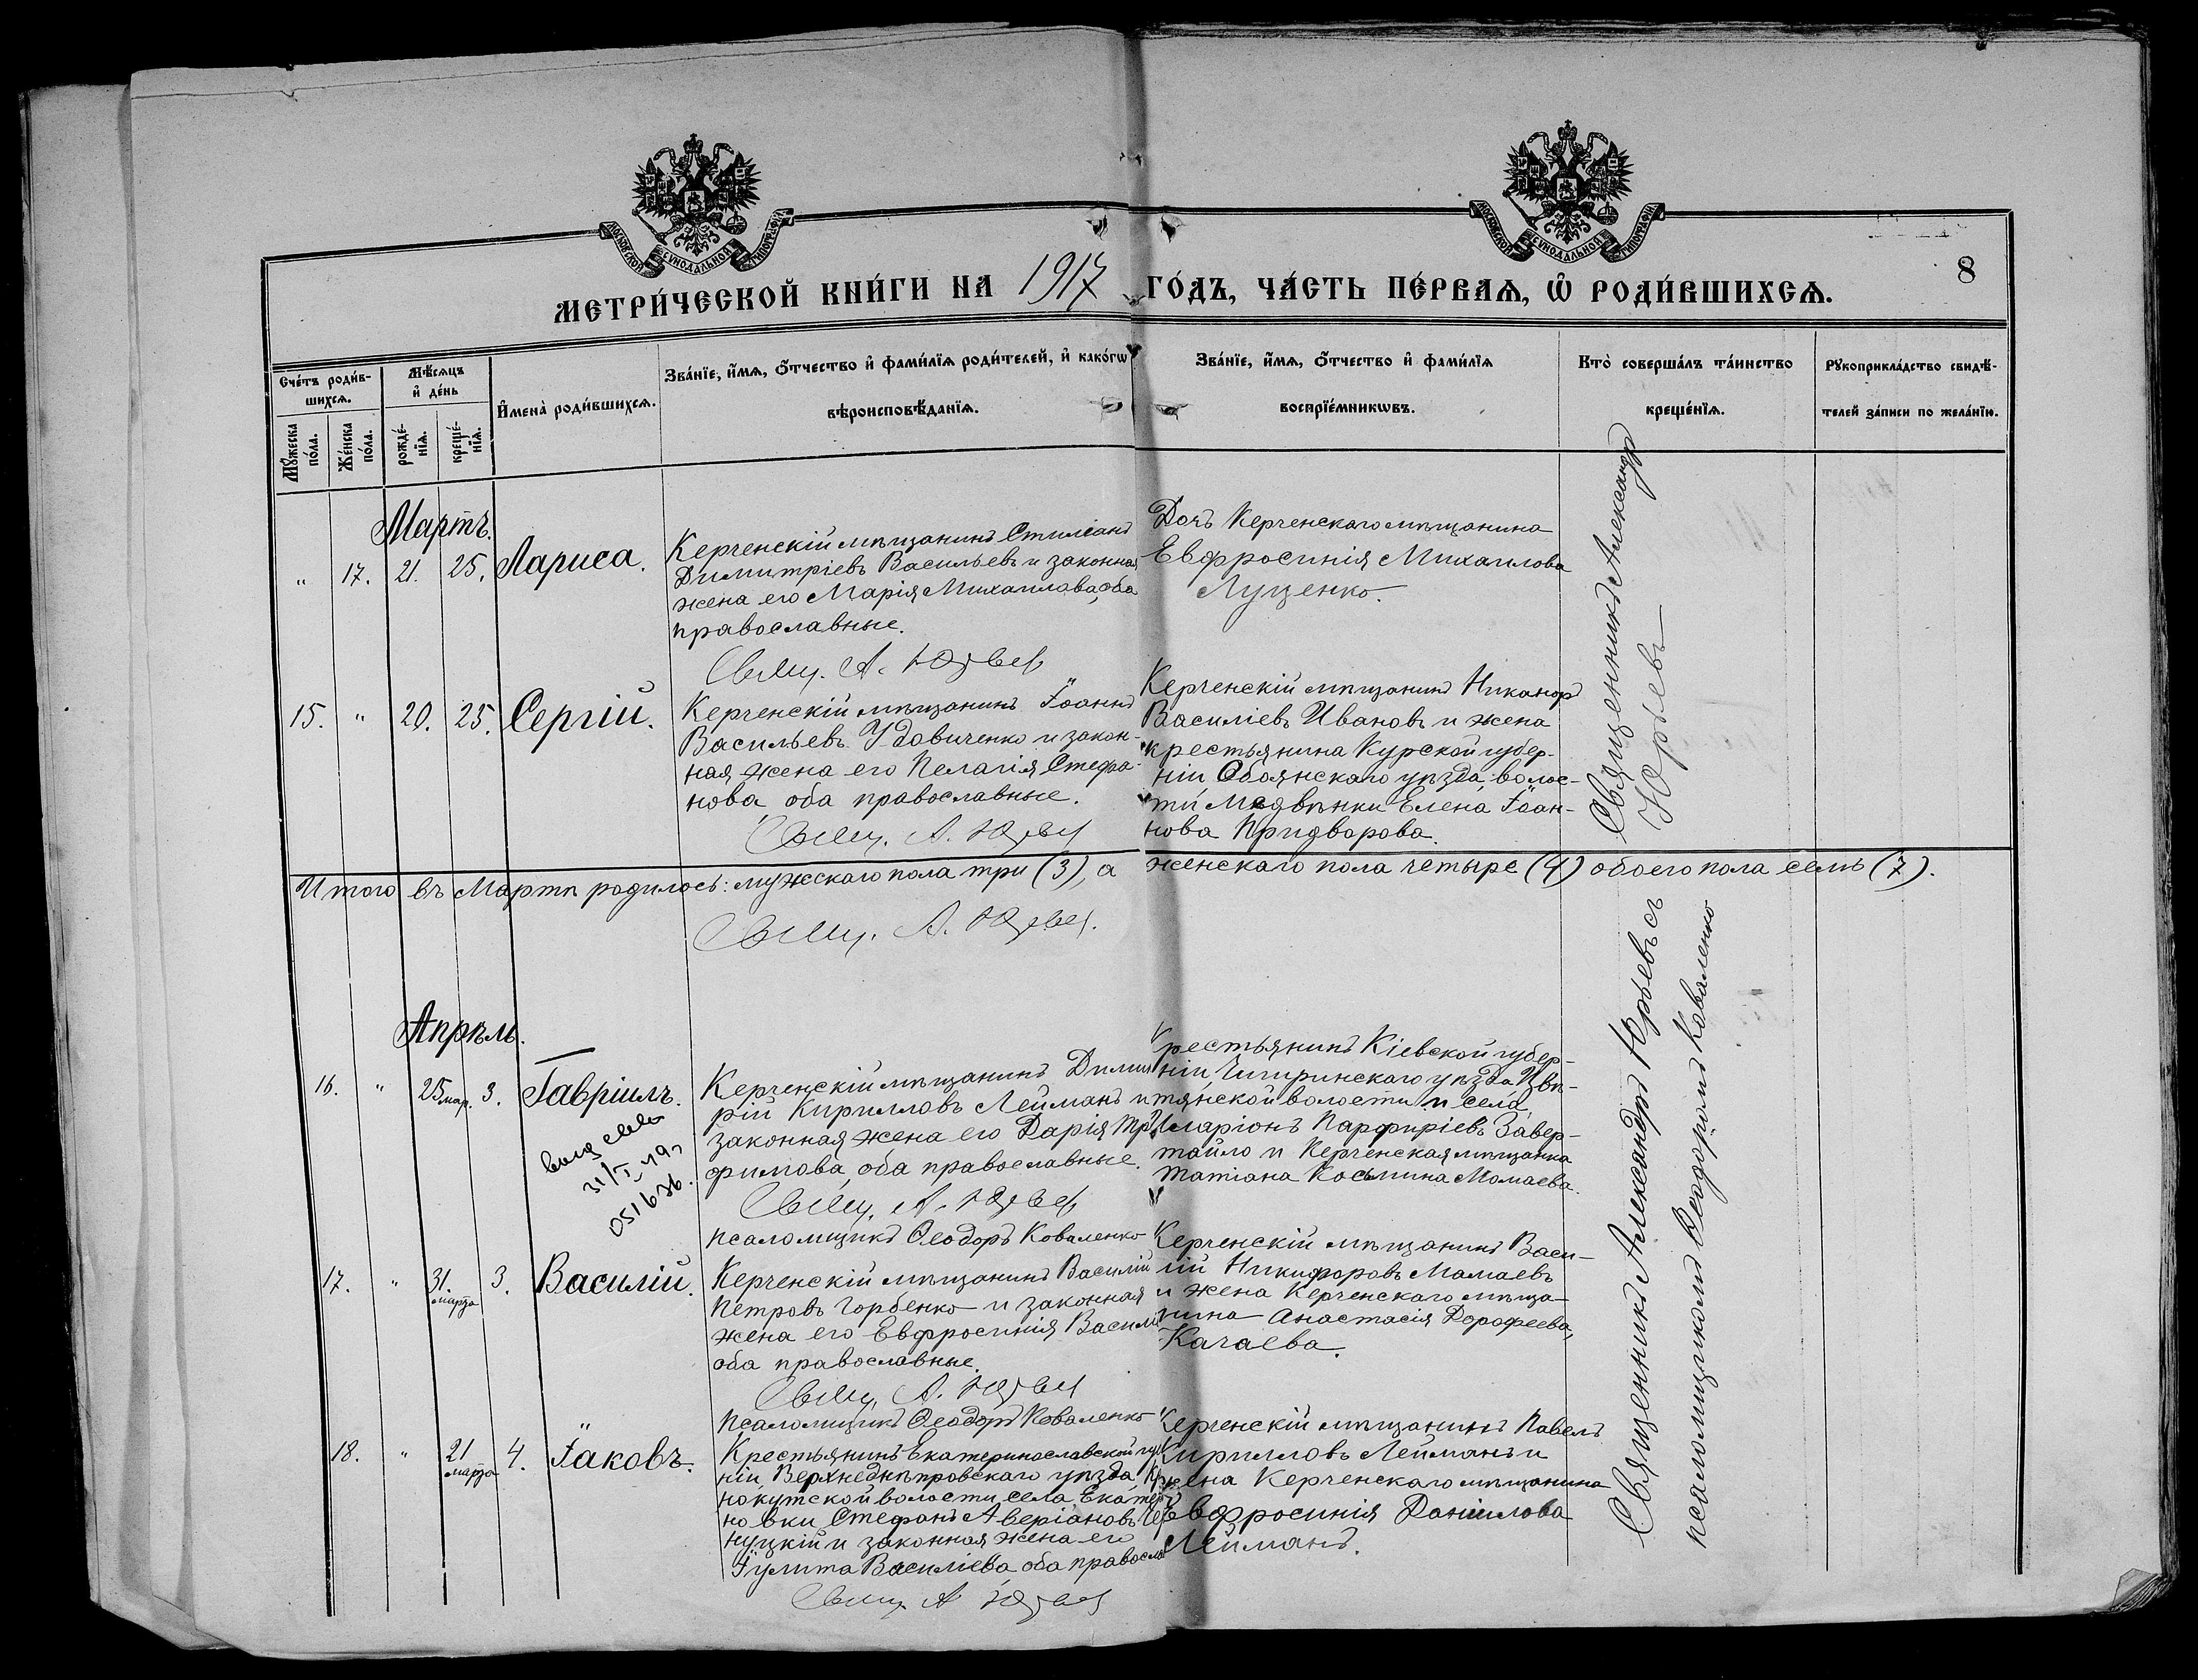 МОСКОВСКОЙ СѴНОДАЛЬНОЙ ТИПОГРАФІИ
МОСКОВСКОЙ СѴНОДАЛЬНОЙ ТИПОГРАФІИ
МЕТРИ́ЧЕСКОЙ КНИ́ГИ НА 1917 ГО́ДЪ, ЧА́СТЬ ПЕ́РВАѦ, Ѽ РОДИ́ВШИХСѦ.
8
Сче́тъ роди́в-
шихсѧ.
Мꙋ́жеска по́ла.
Же́нска по́ла.
Мѣ́сѧцъ и҆ де́нь
рожде́-
нїѧ.
креще́-
нїѧ.
И҆мена̀ роди́вшихсѧ.
Зва́нїе, и҆́мѧ, ѻ҆́тчество и҆ фами́лїѧ роди́телей, и҆ како́гѡ
вѣроисповѣ́данїѧ.
Зва́нїе, и҆́мѧ, ѻ҆́тчество и҆ фами́лїѧ
воспрїе́мникѡвъ.
Кто̀ соверша́лъ та́инство
креще́нїѧ.
Рꙋкоприкла́дство свидѣ́-
телей за́писи по жела́нїю.
Мартъ.
" 17. 21. 25. Лариса.
Керченскій мѣщанинъ Стиліанъ
Димитріевъ Васильевъ и законная
жена его Марія Михаилова, оба
православные.
Свящ. А. Юрьев
Дочь Керченскаго мѣщанина
Евфросинія Михаилова
Луценко.
15. " 20. 25. Сергій.
Керченскій мѣщанинъ Іоаннъ
Васильевъ Удовиченко и закон-
ная жена его Пелагія Стефа-
нова, оба православные.
Свящ. А. Юрьев
Керченскій мѣщанинъ Никаноръ
Василіевъ Ивановъ и жена
крестьянина Курской губер-
ніи, Обоянскаго уѣзда, волос-
ти Медвѣнки Елена Іоан-
нова Придворова.
Священникъ Александръ
Юрьевъ
Итого въ Мартѣ родилось: мужскаго пола три (3), а женскаго пола четыре (4) обоего пола семь (7).
Свящ. А. Юрьев.
Апрѣль.
16. " 25 мар. 3. Гавріилъ.
31/I 49 г
051636.
Керченскій мѣщанинъ Димит
рій Кирилловъ Лейманъ и
законная жена его Дарія Тро
фимова, оба православные.
Свящ. А. Юрьев
псаломщикъ Ѳеодоръ Коваленко
Крестьянинъ Кіевской губер-
ніи, Чигиринскаго уѣзда, Цвѣ-
тянской волости и села,
Иларіонъ Парфиріевъ Завер-
тайло и Керченская мѣщанка
Татіана Косьмина Момаева.
17. " 31. марта 3. Василій.
Керченскій мѣщанинъ Василій
Петровъ Горбенко и законная
жена его Евфросинія Василі
оба православные.
Свящ. А. Юрьев
Псаломщикъ Ѳеодоръ Коваленко
Керченскій мѣщанинъ Васи-
лій Никифоровъ Мамаевъ
и жена Керченскаго мѣща-
нина Анастасія Дорофеева,
Качаева.
18. " 21 марта 4. Іаковъ.
Крестьянинъ Екатеринославской гу
ніи, Верхнеднѣпровскаго уѣзда, Кри
нокутской волости, села Екатери
новки Стефанъ Аверіановъ Чер
нуцкій и законная жена его
Іулита Василіева, оба правосла
Свящ. А Юрьев
Керченскій мѣщанинъ Павелъ
Кирилловъ Лейманъ и
жена Керченскаго мѣщанина
Евфросинія Даніилова
Лейманъ.
Священникъ Александръ Юрьевъ съ
псаломщикомъ Ѳеодоромъ Коваленко